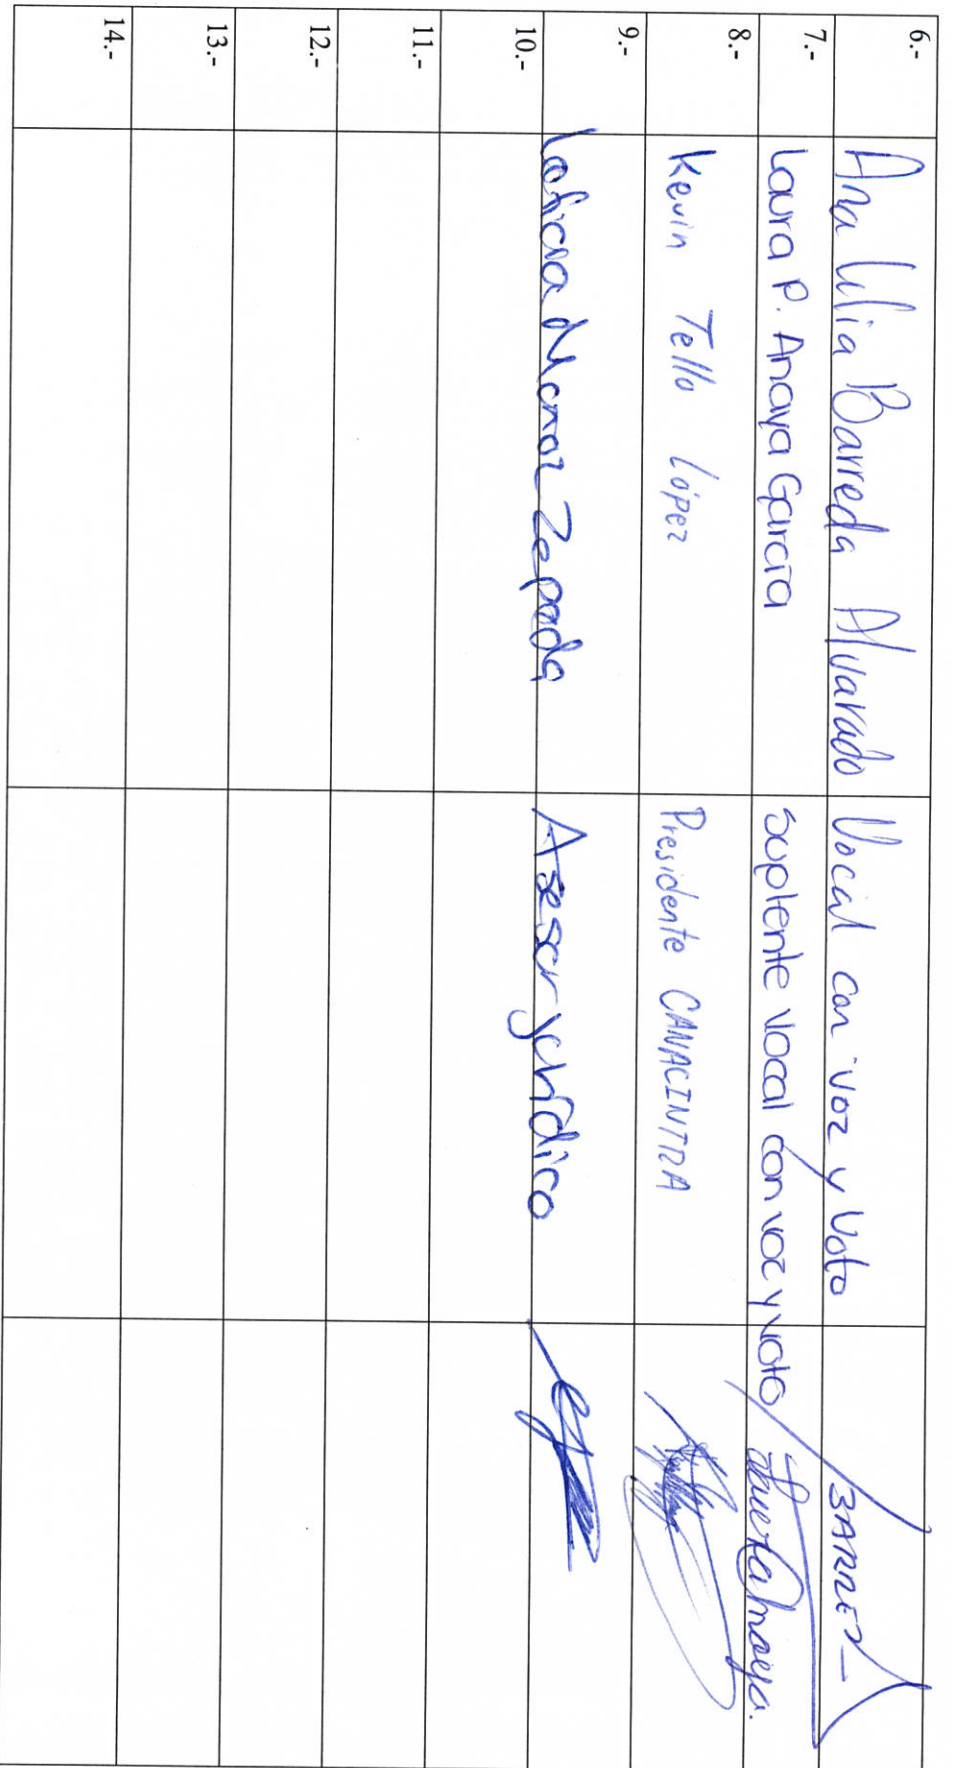 6.- Ana Lilia Barreda Alvarado Vocal con voz y Voto BARRED
7.- Laura P. Anaya García suplente vocal con voz y voto Laura Anaya.
8.- Kevin Tello López Presidente CANACINTRA
9.- Leticia Zepeda Asesor jurídico
10.-
11.-
12.-
13.-
14.-